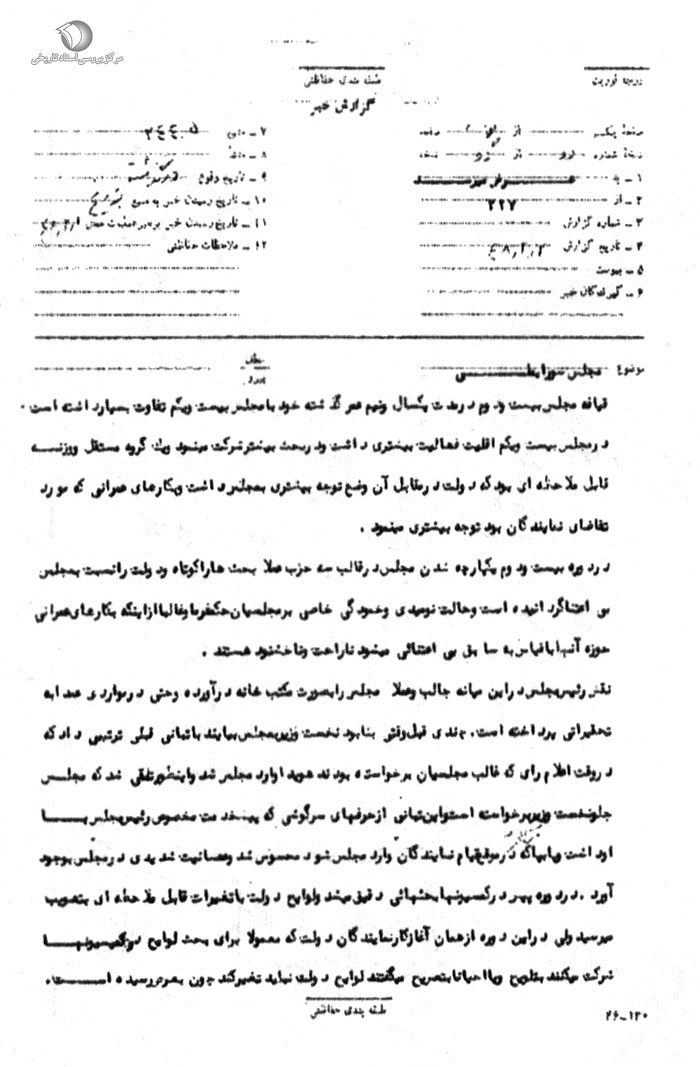 مرکز بررسی اسناد تاریخی
درجه فوریت
طبقه بندی حفاظتی
گزارش خبر
صفحه یکم از صفحه
نسخه شماره از نسخه
۱ ـ به
۲ ـ از ۳۲۷
۳ ـ شماره گزارش
۴ ـ تاریخ گزارش
۵ ـ پیوست
۶ ـ گیرندگان خبر
۷ ـ منبع
۸ ـ منشا
۹ ـ تاریخ وقوع
۱۰ ـ تاریخ رسیدن خبر به منبع
۱۱ ـ تاریخ رسیدن خبر به رهبر عملیات محل
۱۲ ـ ملاحظات حفاظتی
موضوع : مجلس شورایملی
قیافه مجلس بیست و دوم در مدت یکسال ونیم عمر گذشته خود با مجلس بیست ویکم تفاوت بسیار داشته است .
در مجلس بیست ویکم اقلیت فعالیت بیشتری داشت و در بحث بیشتر شرکت مینمود ویک گروه مستقل ووزنه
قابل ملاحظه ای بود که دولت در مقابل آن وضع توجه بیشتری بمجلس داشت وبکارهای عمرانی که مورد
تقاضای نمایندگان بود توجه بیشتری مینمود .
در دوره بیست و دوم یکپارچه شدن مجلس در قالب سه حزب عملا بحث ها را کوتاه و دولت را نسبت بمجلس
بی اعتنا گردانیده است وحالت نومیدی وخمودگی خاصی بر مجلسیان حکمفرما وغالبا از اینکه بکارهای عمرانی
حوزه آنها با قیاس به سابق بی اعتنائی میشود ناراحت وناخشنود هستند .
نقش رئیس مجلس در این میانه جالب وعملا مجلس را بصورت مکتب خانه درآورده وحتی در مواردی عمدا به
تحقیراتی پرداخته است. چندی قبل وقتی بنا بود نخست وزیر بمجلس بیایند با تبانی قبلی ترتیبی داد که
در وقت اعلام رای که غالب مجلسیان برخواسته بودند هویدا وارد مجلس شد واینطور تلقی شد که مجلس
جلو نخست وزیر برخواسته است واین تبانی از حرفهای سرگوشی که پیشخدمت مخصوص رئیس مجلس با
او داشت وبا بها که در موقع قیام نمایندگان وارد مجلس شود محسوس شد وعصبانیت شدیدی در مجلس بوجود
آورد . در دوره پیش در کمسیونها بحثهائی دقیق میشد ولوایح دولت با تغییرات قابل ملاحظه ای بتصویب
میرسید ولی در این دوره از همان آغاز کار نمایندگان دولت که معمولا برای بحث لوایح در کمیسیونها
شرکت میکنند بتلویح ویا احیانا بتصریح میگفتند لوایح دولت نباید تغییر کند چون بعرض رسیده است .
طبقه بندی حفاظتی
۴۶-۱۲۰